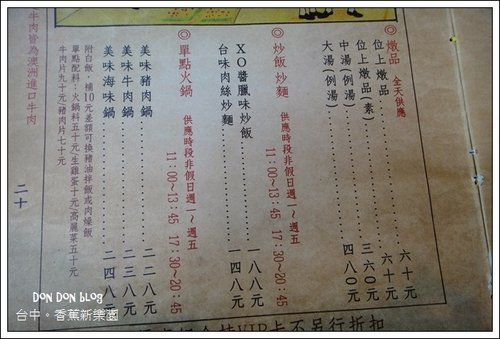 ◎燉品 全天供應
位上燉品……六十元
位上燉品(素)……六十元
中湯(例湯)……三六〇元
大湯(例湯)……四八〇元
◎炒飯、炒麵
供應時段非假日週一~週五
11:00~13:45 17:30~20:45
XO醬臘味炒飯……一八八元
台味肉絲炒麵……一四八元
◎單點火鍋
供應時段非假日週一~週五
11:00~13:45 17:30~20:45
美味豬肉鍋……二二八元
美味牛肉鍋……二三八元
美味海味鍋……二四八
附白飯,補10元差額可換豬油拌飯或肉燥飯
單點配料:火鍋料五十元/生雞蛋十元/高麗菜五十元
牛肉片九十元/豬肉片七十元
牛肉皆為澳洲進口牛肉
二十
VIP卡不另行折扣
DON DON BLOG
台中。香蕉新樂園